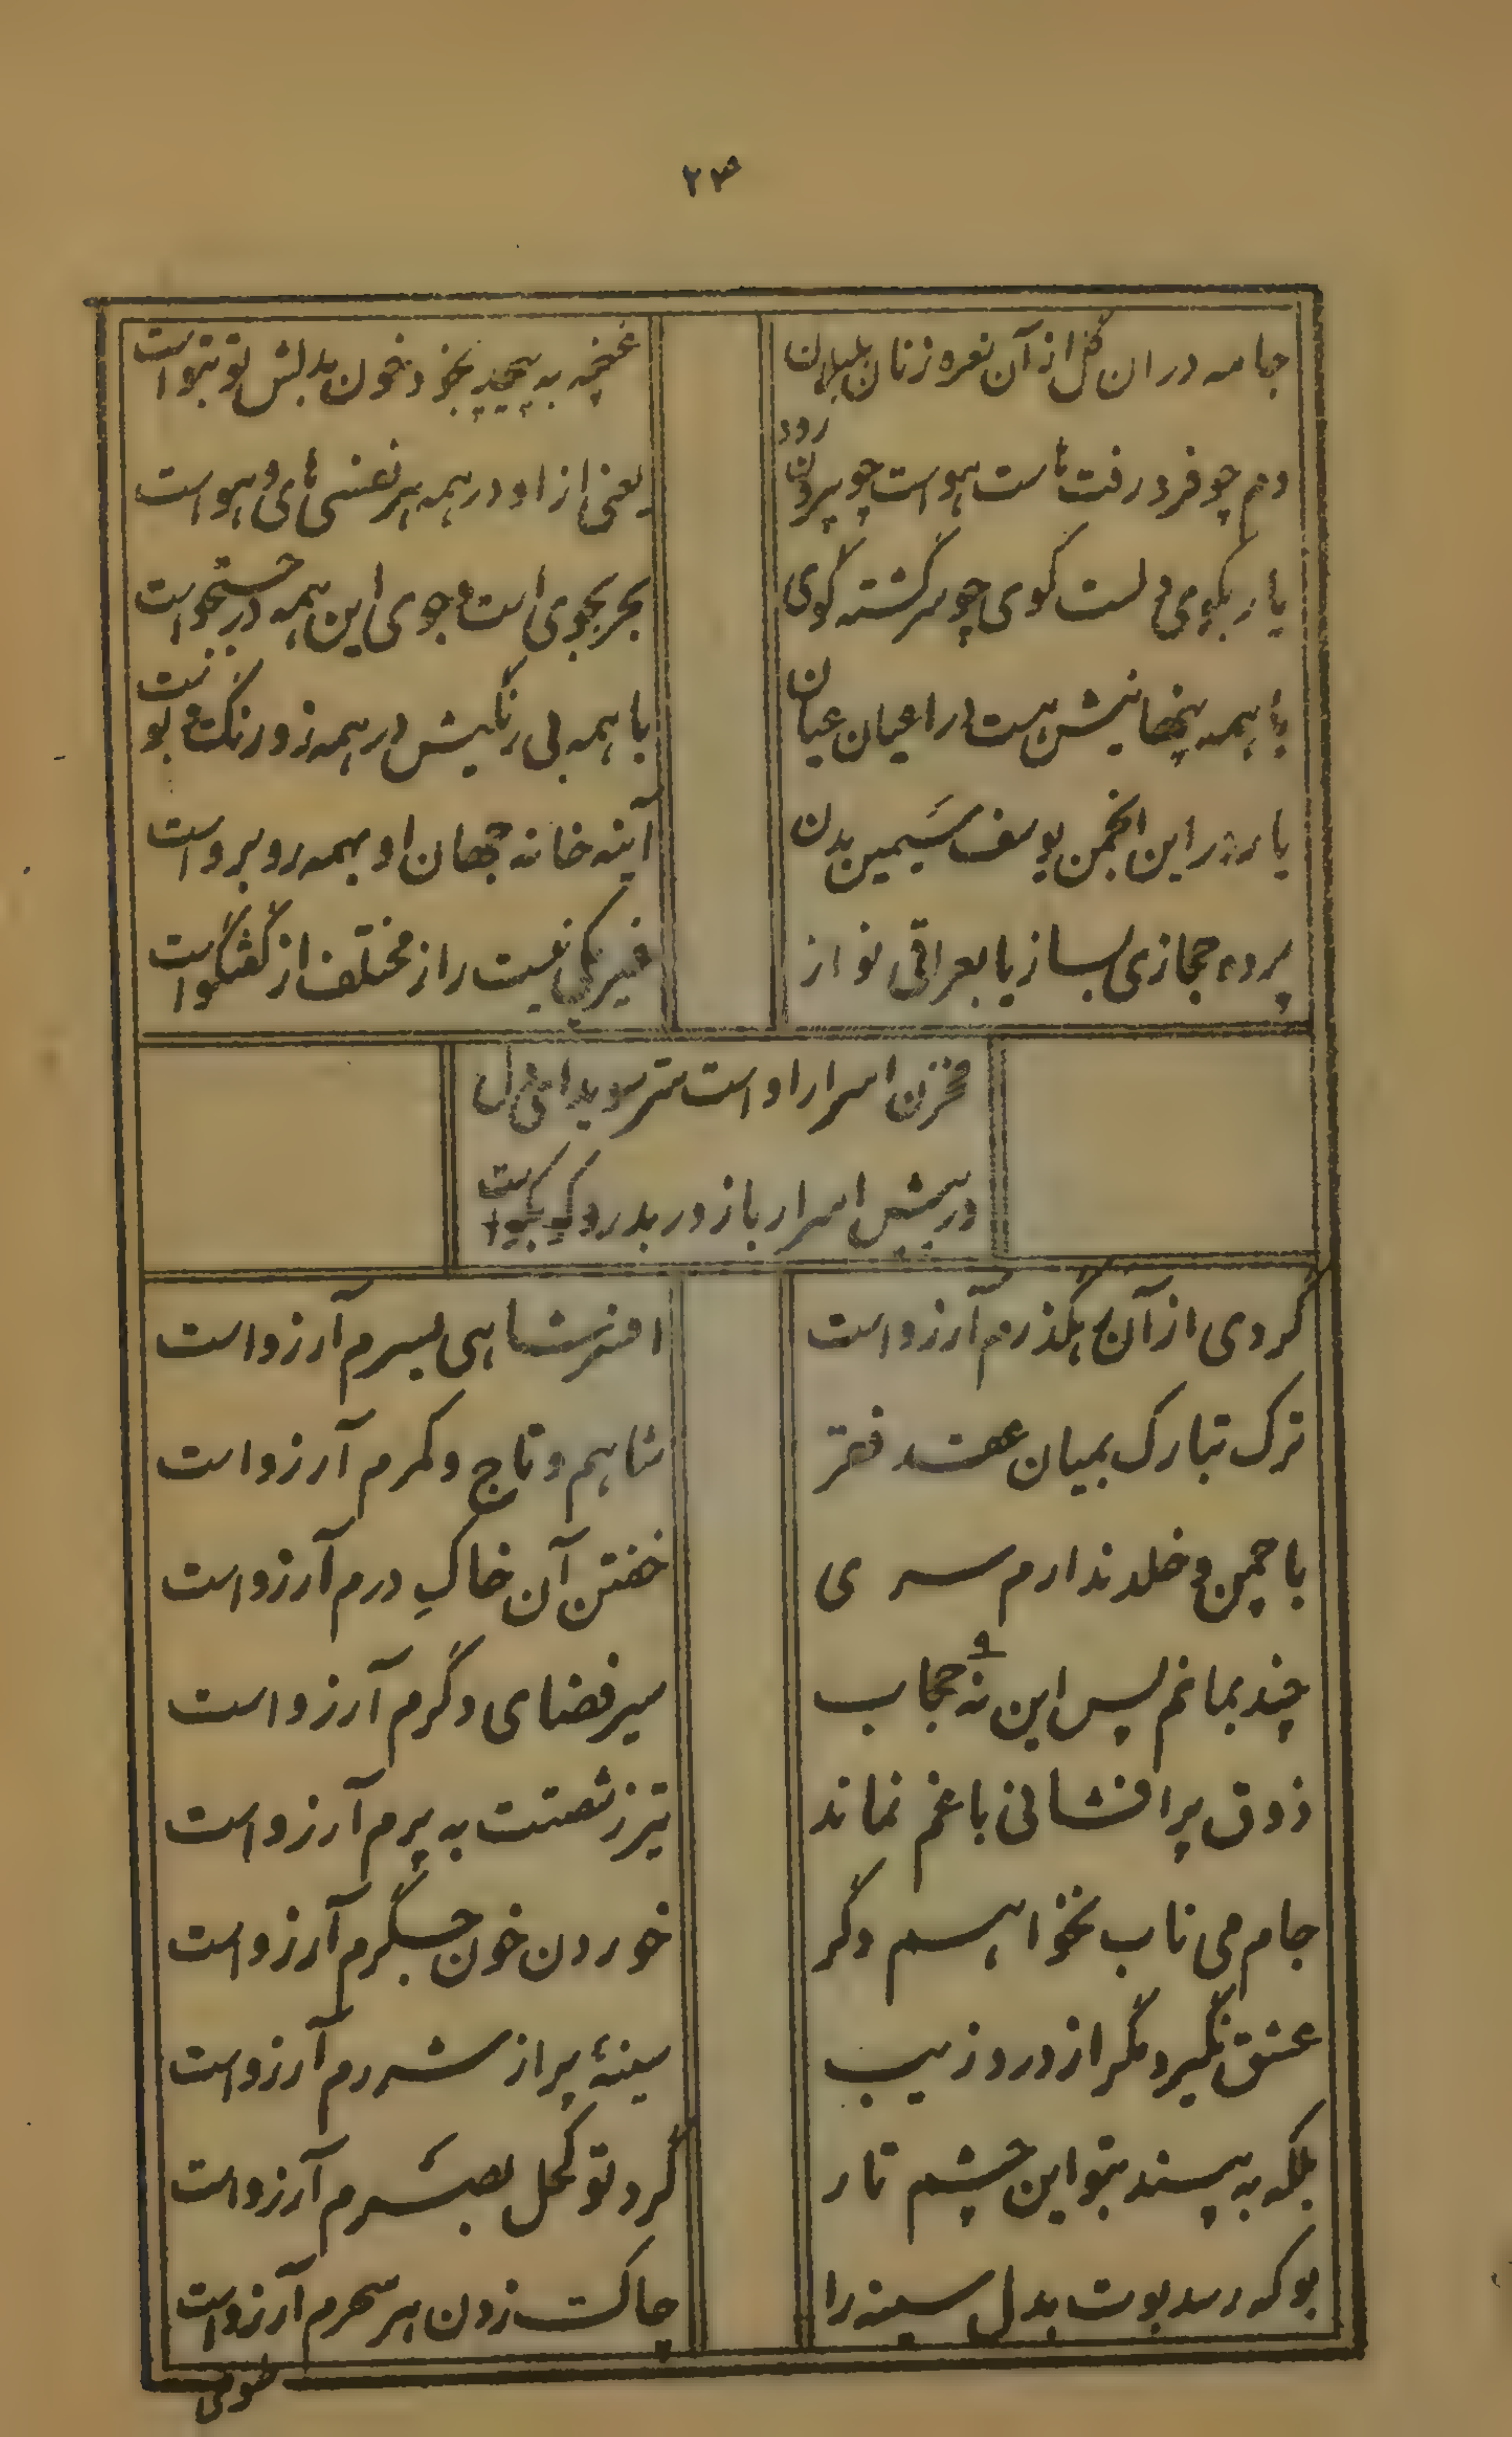 ۲۳
جامه دران گل از آن نعره زنان بلبلان
غنچه به پیچد بخود خون بدلش تو بتو است
دم چو فرو رفت هاست هوست چو بیرون رود
یعنی از او در همه هر نفسی های و هو است
یار بکوی دلست کوی چو سرگشته گوی
بحر بجوی است و جوی این همه در جستجو است
با همه پنهانیش هست در اعیان عیان
با همه بی رنگیش در همه زو رنگ و بوست
یار در این انجمن یوسف سیمین بدن
آینه خانه جهان او بهمه روبرو است
پرده حجازی بساز یا بعراقی نواز
غیر یکی نیست راز مختلف از گفتگو است
مخزن اسرار او است سر سویدای دل
در پیش اسرار باز در بدر و کو بکو است
گردی از آن رهگذرم آرزو است
افسر شاهی بسرم آرزو است
ترک تبارک بمیان عقد فقر
شاهم و تاج و کمرم آرزو است
با چمن و خلد ندارم سری
خفتن آن خاک درم آرزو است
چند بمانم پس این نه حجاب
۹
سیر فضای دگرم آرزو است
ذوق پر افشانی باغم نماند
تیر ز شصتت به پرم آرزو است
جام می ناب نخواهم دگر
خوردن خون جگرم آرزو است
عشق نگیرد مگر از درد زیب
سینهٔ پر از شررم آرزو است
بلکه به پسند بتو این چشم تار
گرد تو کحل بصرم آرزو است
بو که رسد بوت بدل سینه را
چاک زدن هر سحرم آرزو است
طوطی